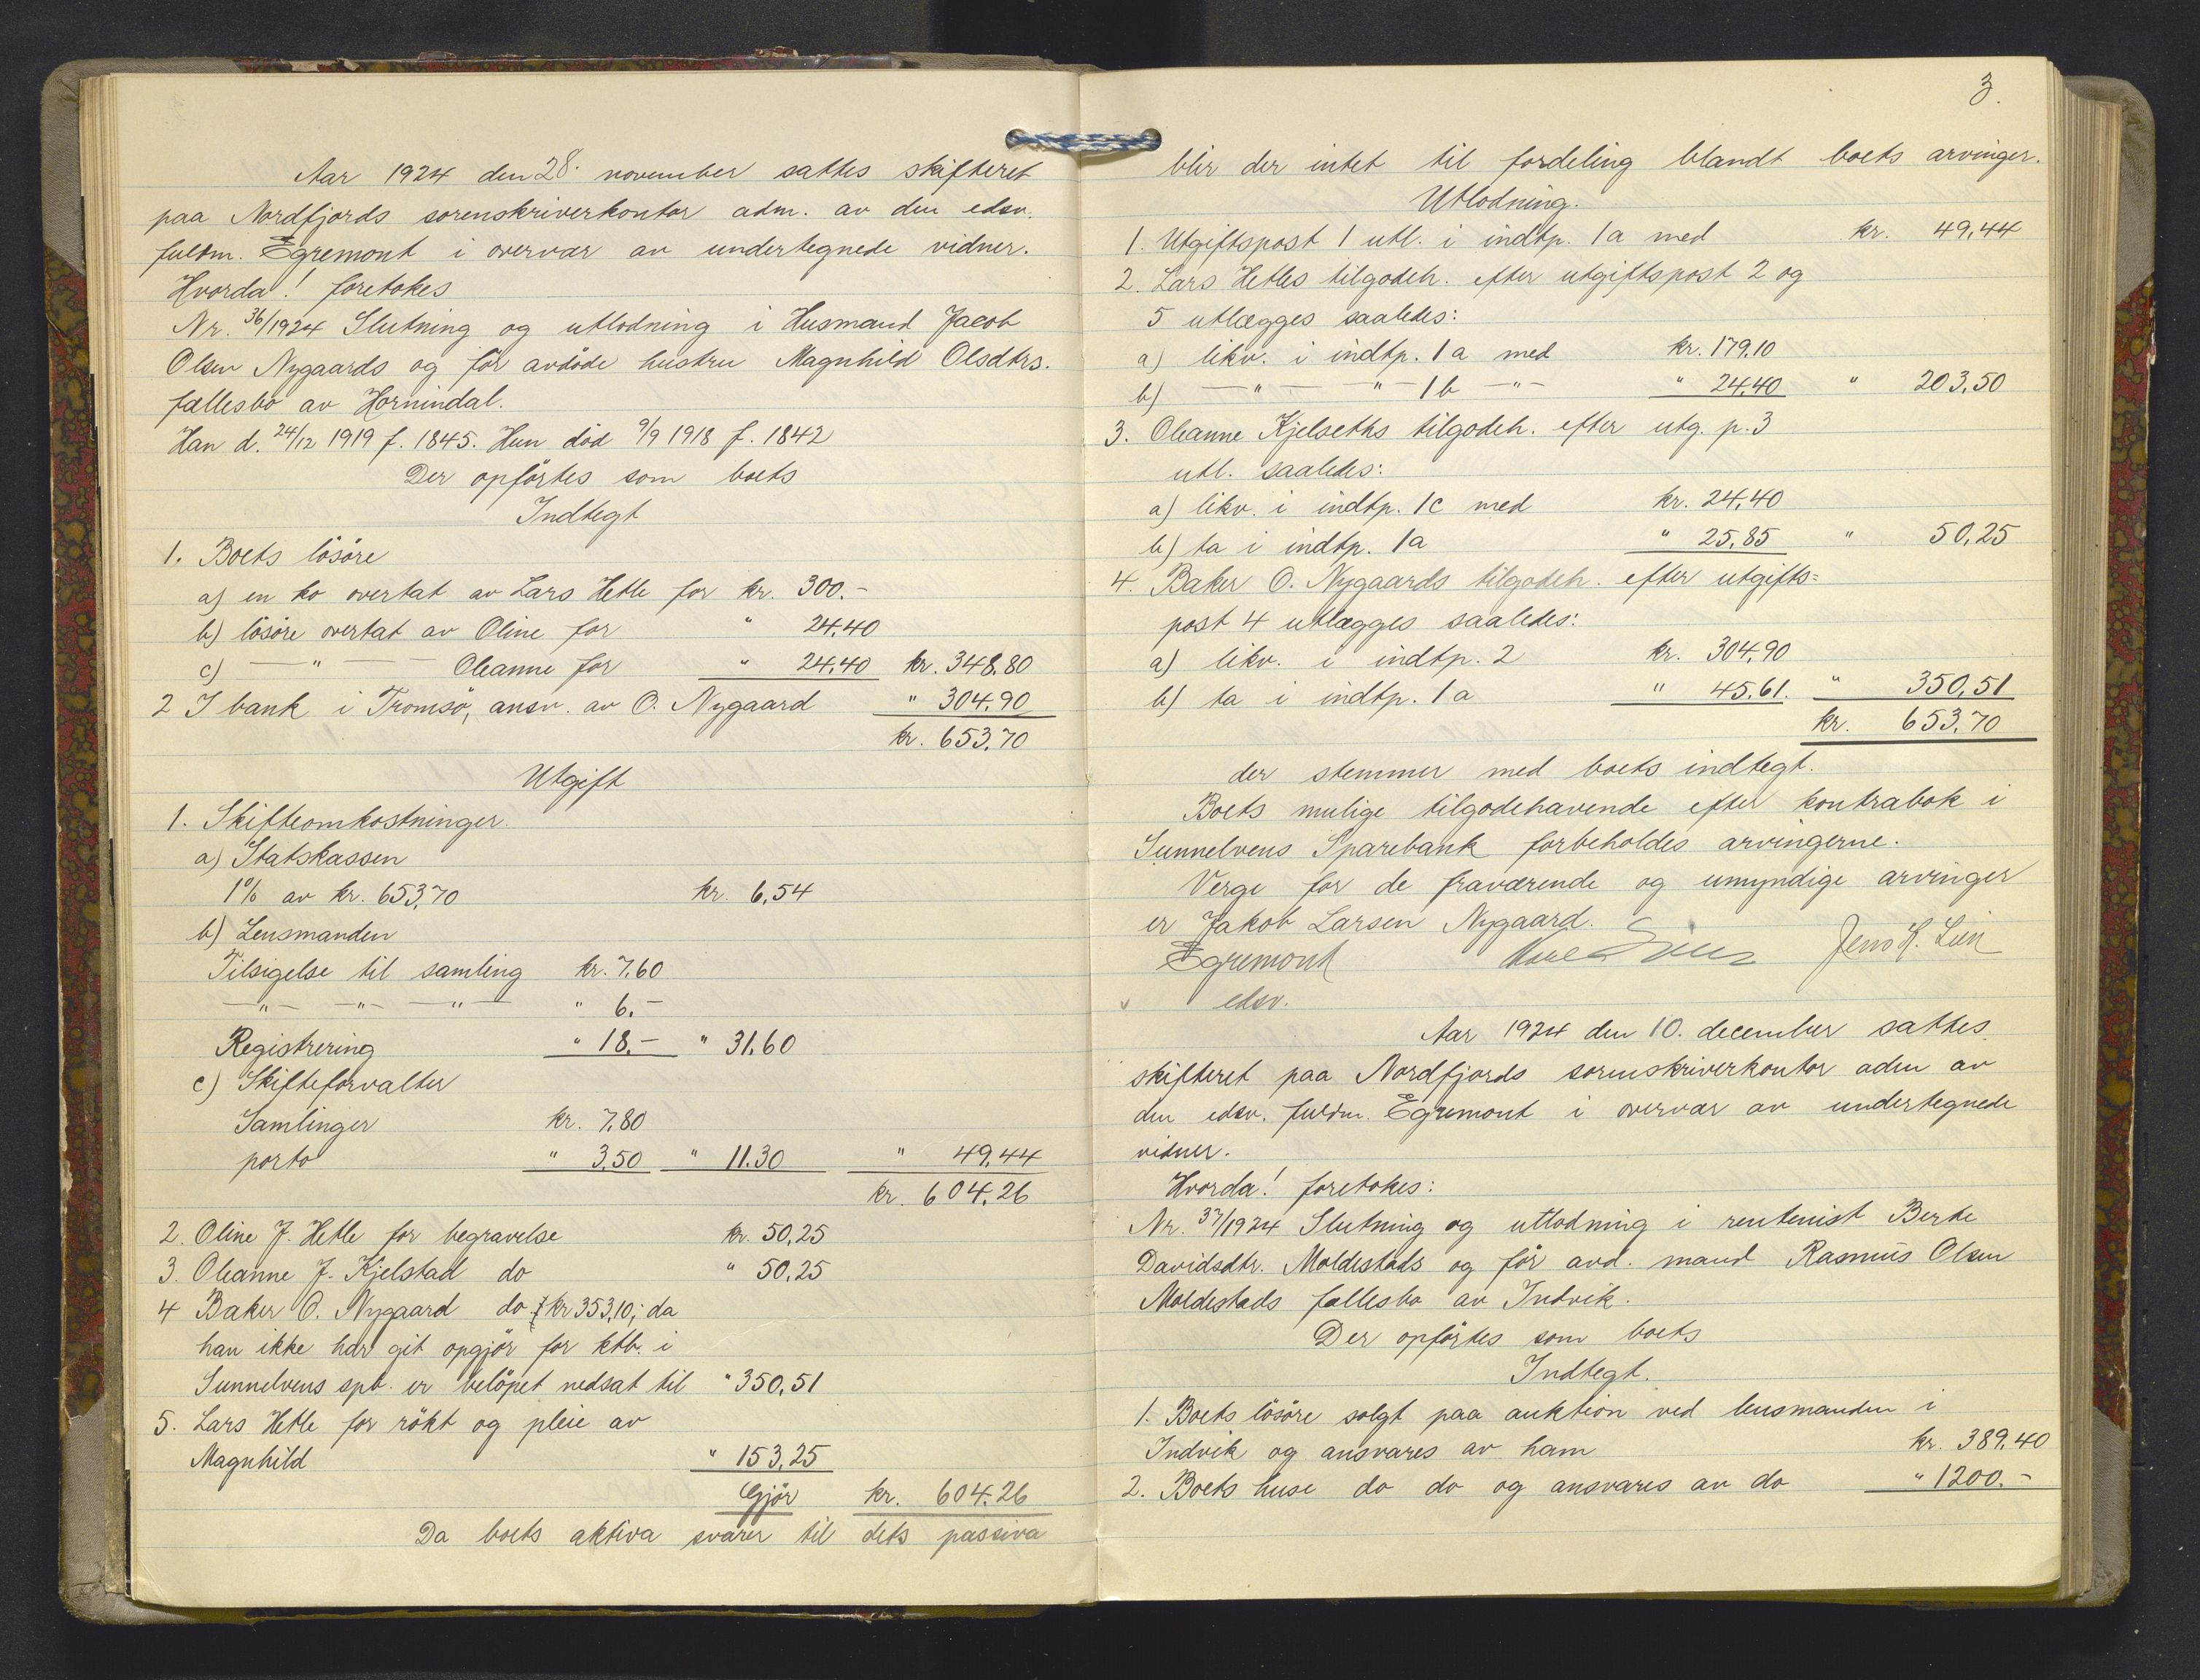 Aar 1924 den 28. november sattes skifteret
paa Nordfjords sorenskriverkontor adm. av den edsv.
fuldm. Egremont i overvær av undertegnede vidner.
Hvorda! foretokes
Nr. 36/1924 Slutning og utlodning i Husmand Jacob
Olsen Nygaards og før avdöde hustru Magnhild Olsdtrs.
fællesbo av Hornindal.
Han d. 24/12 1919 f. 1845. Hun död 9/9 1918 f. 1842
Der opförtes som boets
Indtegt
1. Boets lösöre
a) en ko overtat av Lars Hetle for kr. 300.-
b) lösöre overtat av Oline for " 24,40
c) — " — Oleanne for " 24,40 kr. 348,80
2 I bank i Tromsö, ansv. av O. Nygaard " 304,90
kr. 653,70
Utgift
1. Skifteomkostninger.
a) Statskassen
1% av kr. 653,70 kr. 6,54
b) Lensmanden
Tilsigelse til samling kr. 7,60
— " — — " — — " — " 6.-
Registrering " 18.- " 31,60
c) Skifteforvalter
Samlinger kr. 7,80
porto " 3,50 " 11.30 " 49,44
kr. 604,26
2. Oline J. Hetle for begravelse kr. 50,25
3. Oleanne J. Kjelstad do " 50,25
4 Baker O. Nygaard do kr 353,10; da
han ikke har git opgjör for ktb. i
Sunnelvens spb. er belöpet nedsat til " 350,51
5. Lars Hetle for rökt og pleie av
Magnhild " 153,25
Gjör kr. 604,26
Da boets aktiva svarer til dets passiva
3.
blir der intet til fordeling blandt boets arvinger.
Utlodning.
1. Utgiftspost 1 utl. i indtp. 1a med kr. 49,44
2. Lars Hetles tilgodeh. efter utgiftspost 2 og
5 utlægges saaledes:
a) likv. i indtp. 1a med kr. 179,10
b) — " — — " — 1b — " — " 24,40 " 203,50
3. Oleanne Kjelseths tilgodeh. efter utg. p. 3
utl. saaledes:
a) likv. i indtp. 1c med kr. 24,40
b) ta i indtp. 1a " 25,85 " 50,25
4. Baker O. Nygaards tilgodeh. efter utgifts=
post 4 utlægges saaledes:
a) likv. i indtp. 2 kr. 304,90
b) ta i indtp. 1a " 45,61. " 350,51
kr. 653,70
der stemmer med boets indtegt.
Boets mulige tilgodehavende efter kontrabok i
Sunnelvens Sparebank forbeholdes arvingerne.
Verge for de fraværende og umyndige arvinger
er Jakob Larsen Nygaard.
Egremont Jens H. Lien
edsv.
Aar 1924 den 10. december sattes
skifteret paa Nordfjords sorenskriverkontor adm av
den edsv. fuldm. Egremont i overvær av undertegnede
vidner.
Hvorda! foretokes:
Nr. 37/1924 Slutning og utlodning i rentenist Berte
Davidsdtr. Moldestads og før avd. mand Rasmus Olsen
Moldestads fællesbo av Indvik.
Der opförtes som boets
Indtegt.
1. Boets lösöre solgt paa auktion ved lensmanden i
Indvik og ansvares av ham kr. 389,40
2. Boets huse do do og ansvares av do " 1200.-